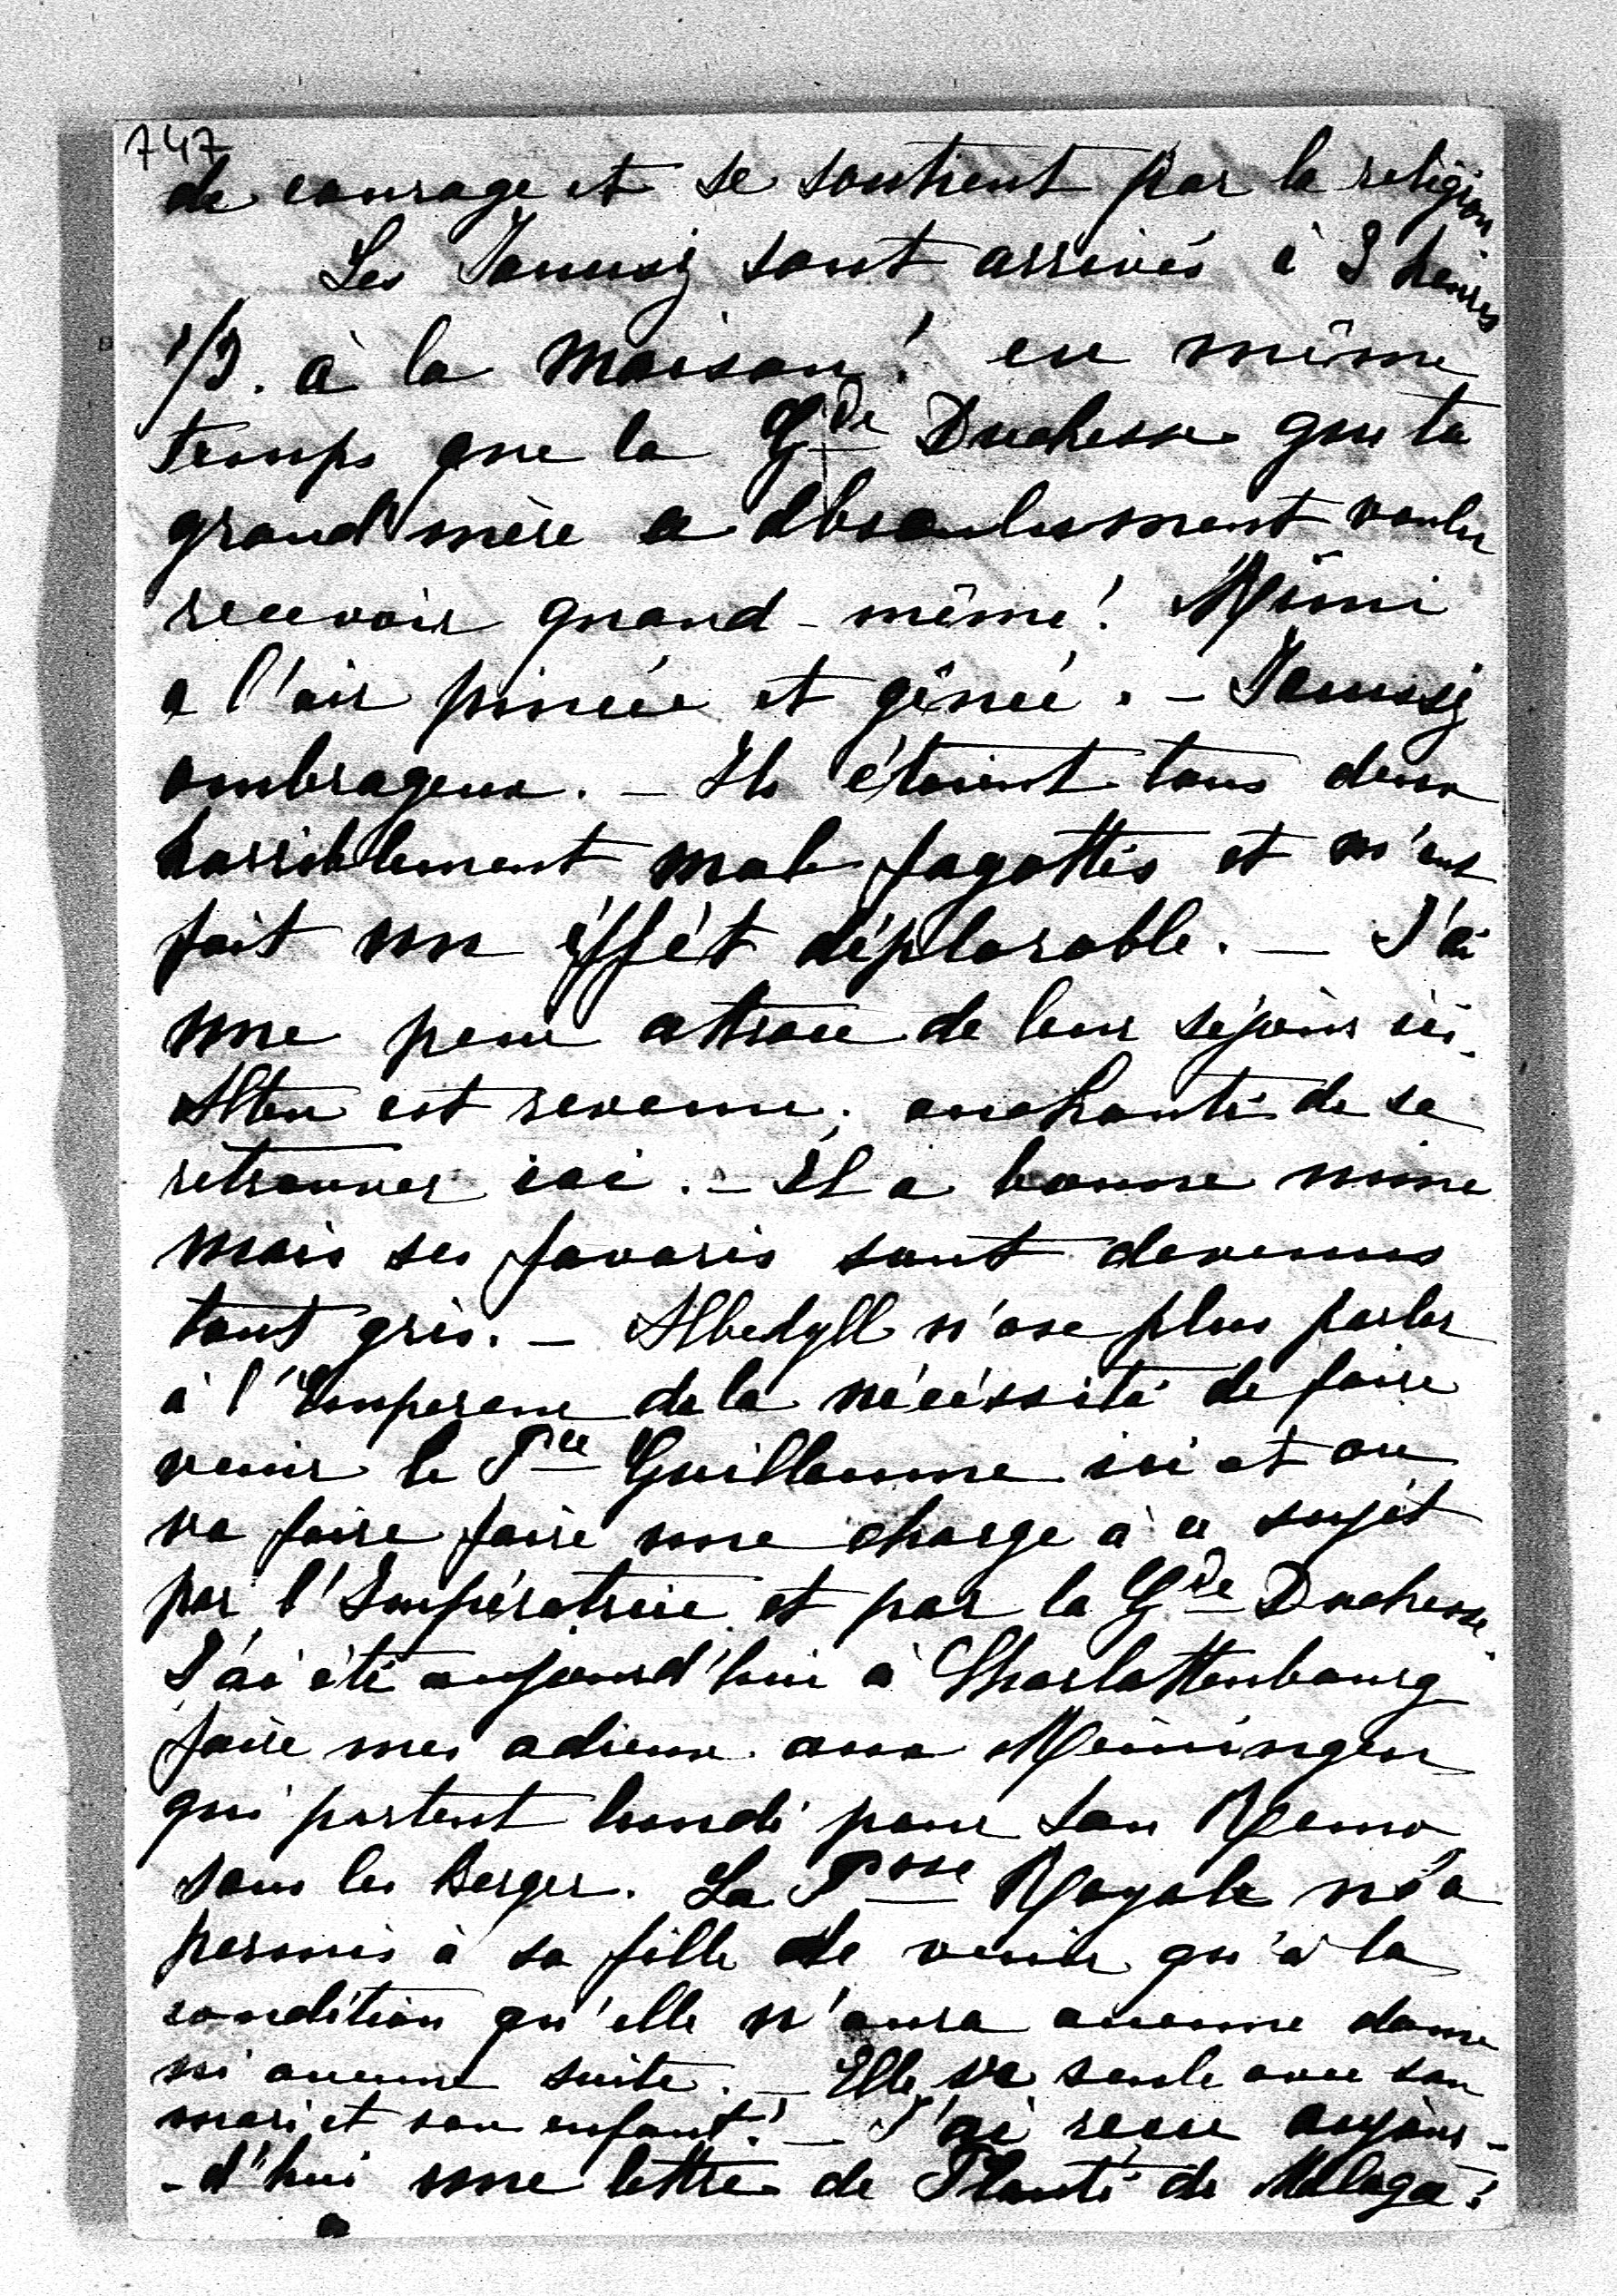 747
de courage et se soutient par la religion.
Les Janusz sont arrivés à 3 heures
1/2. à la maison! en même
temps que la Gde Duchesse que ta
grand'mère a absoulument voulu
recevoir quand-même! Mimi
a l'air pincée et gênée. – Janusz
ombrageux. – Ils étaient tous deux
horriblement mal fagottés et m'ont
fait un éffét déplorable. – J'ai
une peur atroce de leur séjour ici.
Alten est revenu, enchanté de se
retrouver ici. – Il a bonne mine
mais ses favoris sont devenus
tout gris. – Albedyll n'ose plus parler
à l'Empereur de la nécéssité de faire
venir le Pce Guillaume ici et on
va faire faire une charge à ce sujét
par l'Impératrice et par la Gde Duchesse.
J'ai été aujourd'hui à Charlottenbourg
faire mes adieux aux Meiningen
qui partent lundi pour San Remo
sans les Berger. La Psse Royale n'a
permis à sa fille de venir qu'à la
condition qu'elle n'aura aucune dame
ni aucune suite. – Elle va seule avec son
mari et son enfant! – J'ai reçu aujour-
-d'hui une lettre de Planté de Malaga!